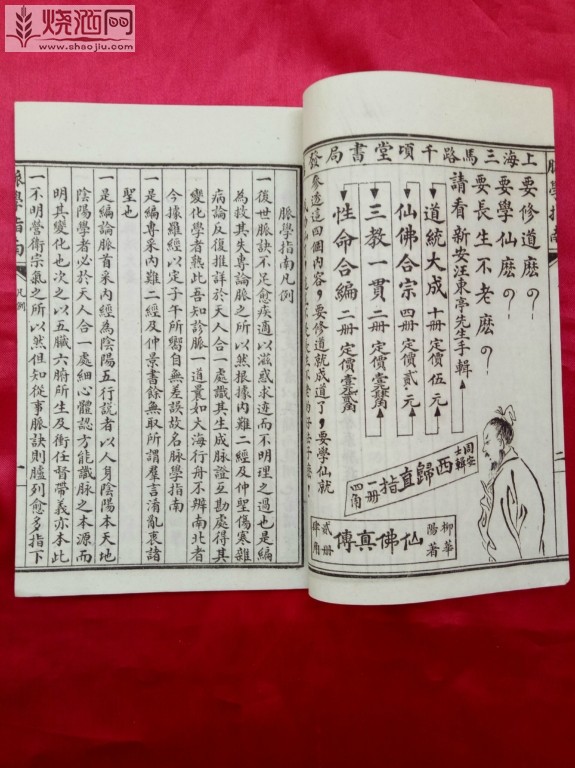 烧酒网
www.shaojiu.com
上海三馬路千頃堂書局發
要修道麽?
要學仙麽?
要長生不老麽?
請看新安汪東亭先生手輯
道統大成 十册定價伍元
仙佛合宗 四册定價貳元
三教一貫 二册定價壹元
性命合編 二册定價壹元
參透這四個内容,要修道就成道了,要學仙就
西歸直指 一册四角
柳華陽著
仙佛真傳
貳册
脉學指南
二
脈學指南凡例
一後世脈訣不足愈疾適以滋惑求迹而不明理之過也是編
爲救其失專論脈之所以然根據内難二經及仲聖傷寒雜
病論反復推詳於天人合一處識其生成脈證互勘處得其
變化學者熟此吾知診脈一道褁如大海行舟不辨南北者
今據羅經以定子午所嚮自無差誤故名脈學指南
一是編專采内難二經及仲景書餘無取所謂羣言淆亂衷諸
聖也
一是編論脈首采内經爲陰陽五行說者以人身陰陽本天地
陰陽學者必於天人合一處細心體認方能識脈之本源而
明其變化也次之以五臟六腑所生及衝任督帶義亦本此
一不明營衛宗氣之所以然但知從事脈訣則臚列愈多指下
脉學指南
凡例
一